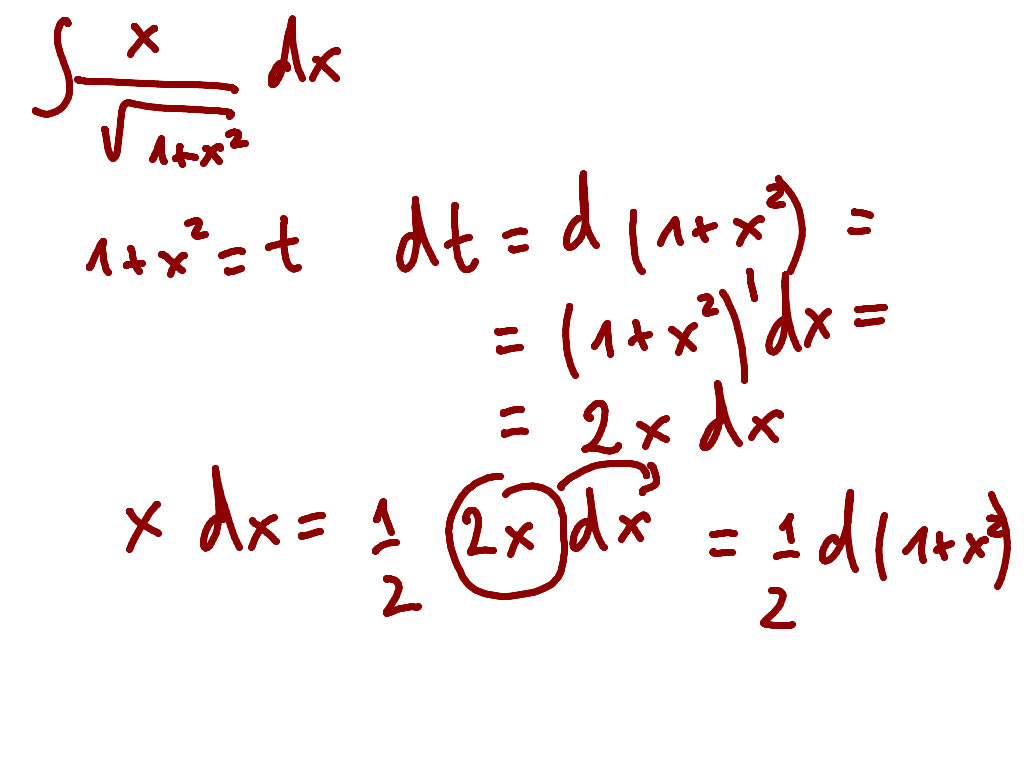 ∫ x / √(1+x²) dx
1+x² = t   dt = d(1+x²) =
= (1+x²)' dx =
= 2x dx
x dx = 1/2 2x dx = 1/2 d(1+x²)